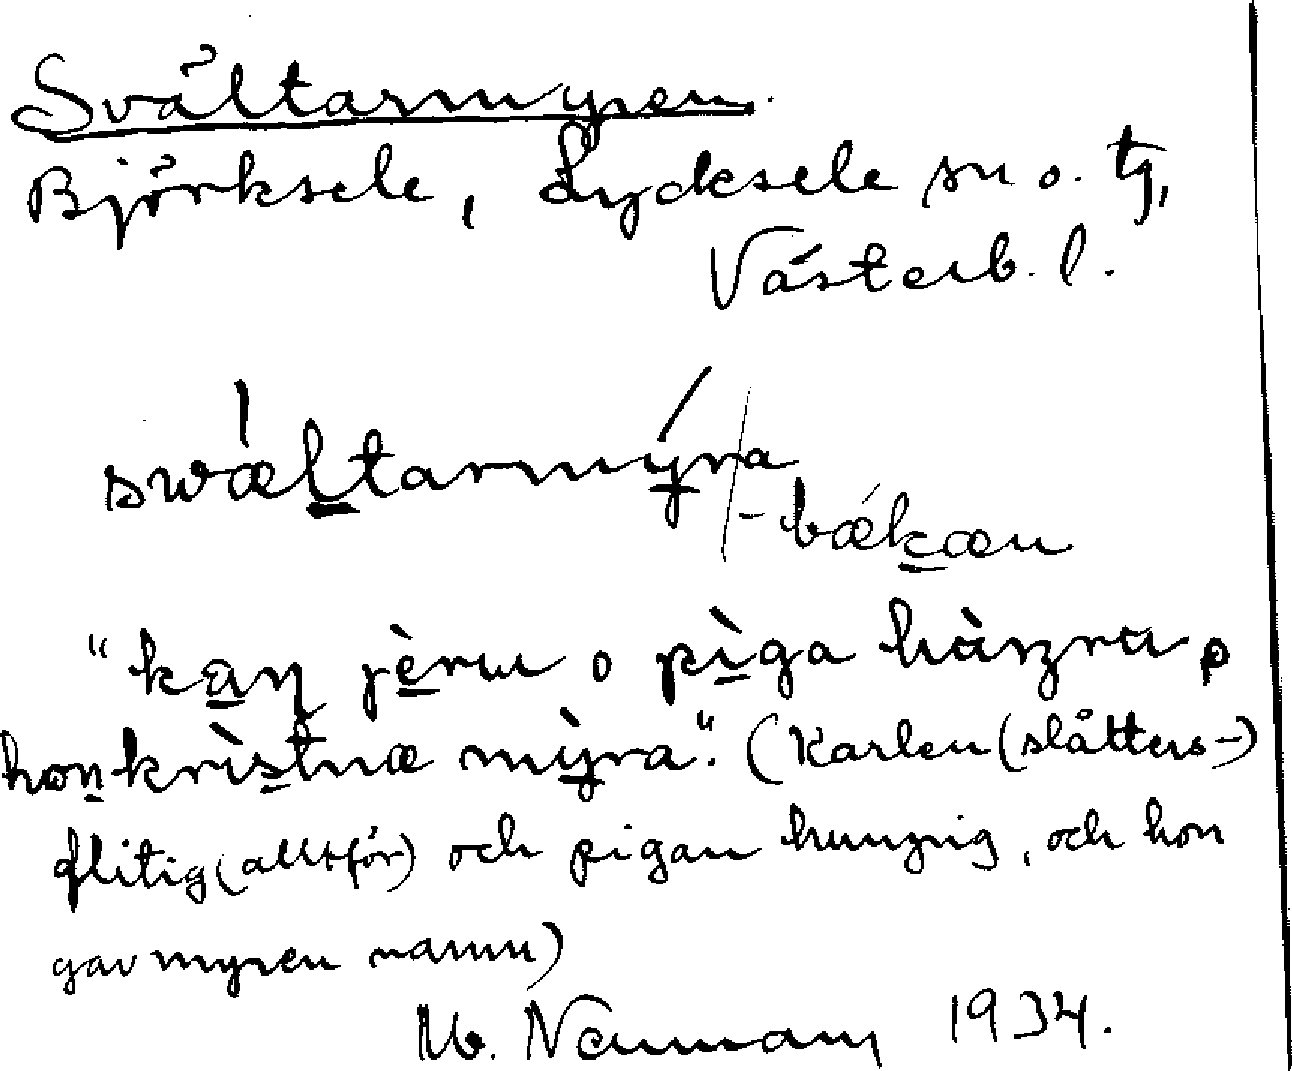 Svältarmyren.
Björksele, Lycksele sn o. tg,
Västerb. l.
swæltarmýra
-bækæn
"kaɳ jèrw o pìga hùngru, o
hon krìstnæ mỳra". (Karlen (slåtters-)
flitig (alltför) och pigan hungrig, och hon
gav myren namn)
1934.